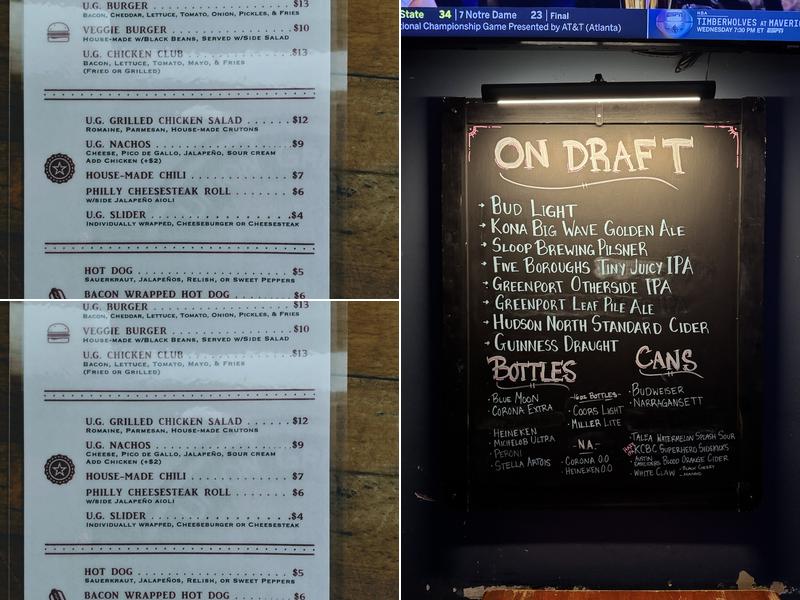 U.G. BURGER $13
BACON, CHEDDAR, LETTUCE, TOMATO, ONION, PICKLES, & FRIES
VEGGIE BURGER $10
HOUSE-MADE W/BLACK BEANS, SERVED W/SIDE SALAD
U.G. CHICKEN CLUB $13
BACON, LETTUCE, TOMATO, MAYO, & FRIES
(FRIED OR GRILLED)
U.G. GRILLED CHICKEN SALAD $12
ROMAINE, PARMESAN, HOUSE-MADE CRUTONS
U.G. NACHOS $9
CHEESE, PICO DE GALLO, JALAPEÑO, SOUR CREAM
ADD CHICKEN (+$2)
HOUSE-MADE CHILI $7
PHILLY CHEESESTEAK ROLL $6
W/SIDE JALAPEÑO AIOLI
U.G. SLIDER $4
INDIVIDUALLY WRAPPED, CHEESEBURGER OR CHEESESTEAK
HOT DOG $5
SAUERKRAUT, JALAPEÑOS, RELISH, OR SWEET PEPPERS
BACON WRAPPED HOT DOG $6
U.G. BURGER $13
BACON, CHEDDAR, LETTUCE, TOMATO, ONION, PICKLES, & FRIES
VEGGIE BURGER $10
HOUSE-MADE W/BLACK BEANS, SERVED W/SIDE SALAD
U.G. CHICKEN CLUB $13
BACON, LETTUCE, TOMATO, MAYO, & FRIES
(FRIED OR GRILLED)
U.G. GRILLED CHICKEN SALAD $12
ROMAINE, PARMESAN, HOUSE-MADE CRUTONS
U.G. NACHOS $9
CHEESE, PICO DE GALLO, JALAPEÑO, SOUR CREAM
ADD CHICKEN (+$2)
HOUSE-MADE CHILI $7
PHILLY CHEESESTEAK ROLL $6
W/SIDE JALAPEÑO AIOLI
U.G. SLIDER $4
INDIVIDUALLY WRAPPED, CHEESEBURGER OR CHEESESTEAK
HOT DOG $5
SAUERKRAUT, JALAPEÑOS, RELISH, OR SWEET PEPPERS
BACON WRAPPED HOT DOG $6
State 34 | 7 Notre Dame 23 | Final
tional Championship Game Presented by AT&T (Atlanta)
ESPN
NBA
TIMBERWOLVES AT MAVERI
WEDNESDAY 7:30 PM ET ESPN
ON DRAFT
BUD LIGHT
KONA BIG WAVE GOLDEN ALE
SLOOP BREWING PILSNER
FIVE BOROUGHS TINY JUICY IPA
GREENPORT OTHERSIDE IPA
GREENPORT LEAF PILE ALE
HUDSON NORTH STANDARD CIDER
GUINNESS DRAUGHT
BOTTLES
BLUE MOON
CORONA EXTRA
HEINEKEN
MICHELOB ULTRA
PERONI
STELLA ARTOIS
16oz BOTTLES
COORS LIGHT
MILLER LITE
N.A.
CORONA 0.0
HEINEKEN 0.0
CANS
BUDWEISER
NARRAGANSETT
TALEA WATERMELON SPLASH SOUR
KCBC SUPERHERO SIDEKICKS
AUSTIN EASTCIDERS BLOOD ORANGE CIDER
WHITE CLAW - BLACK CHERRY
- MANGO